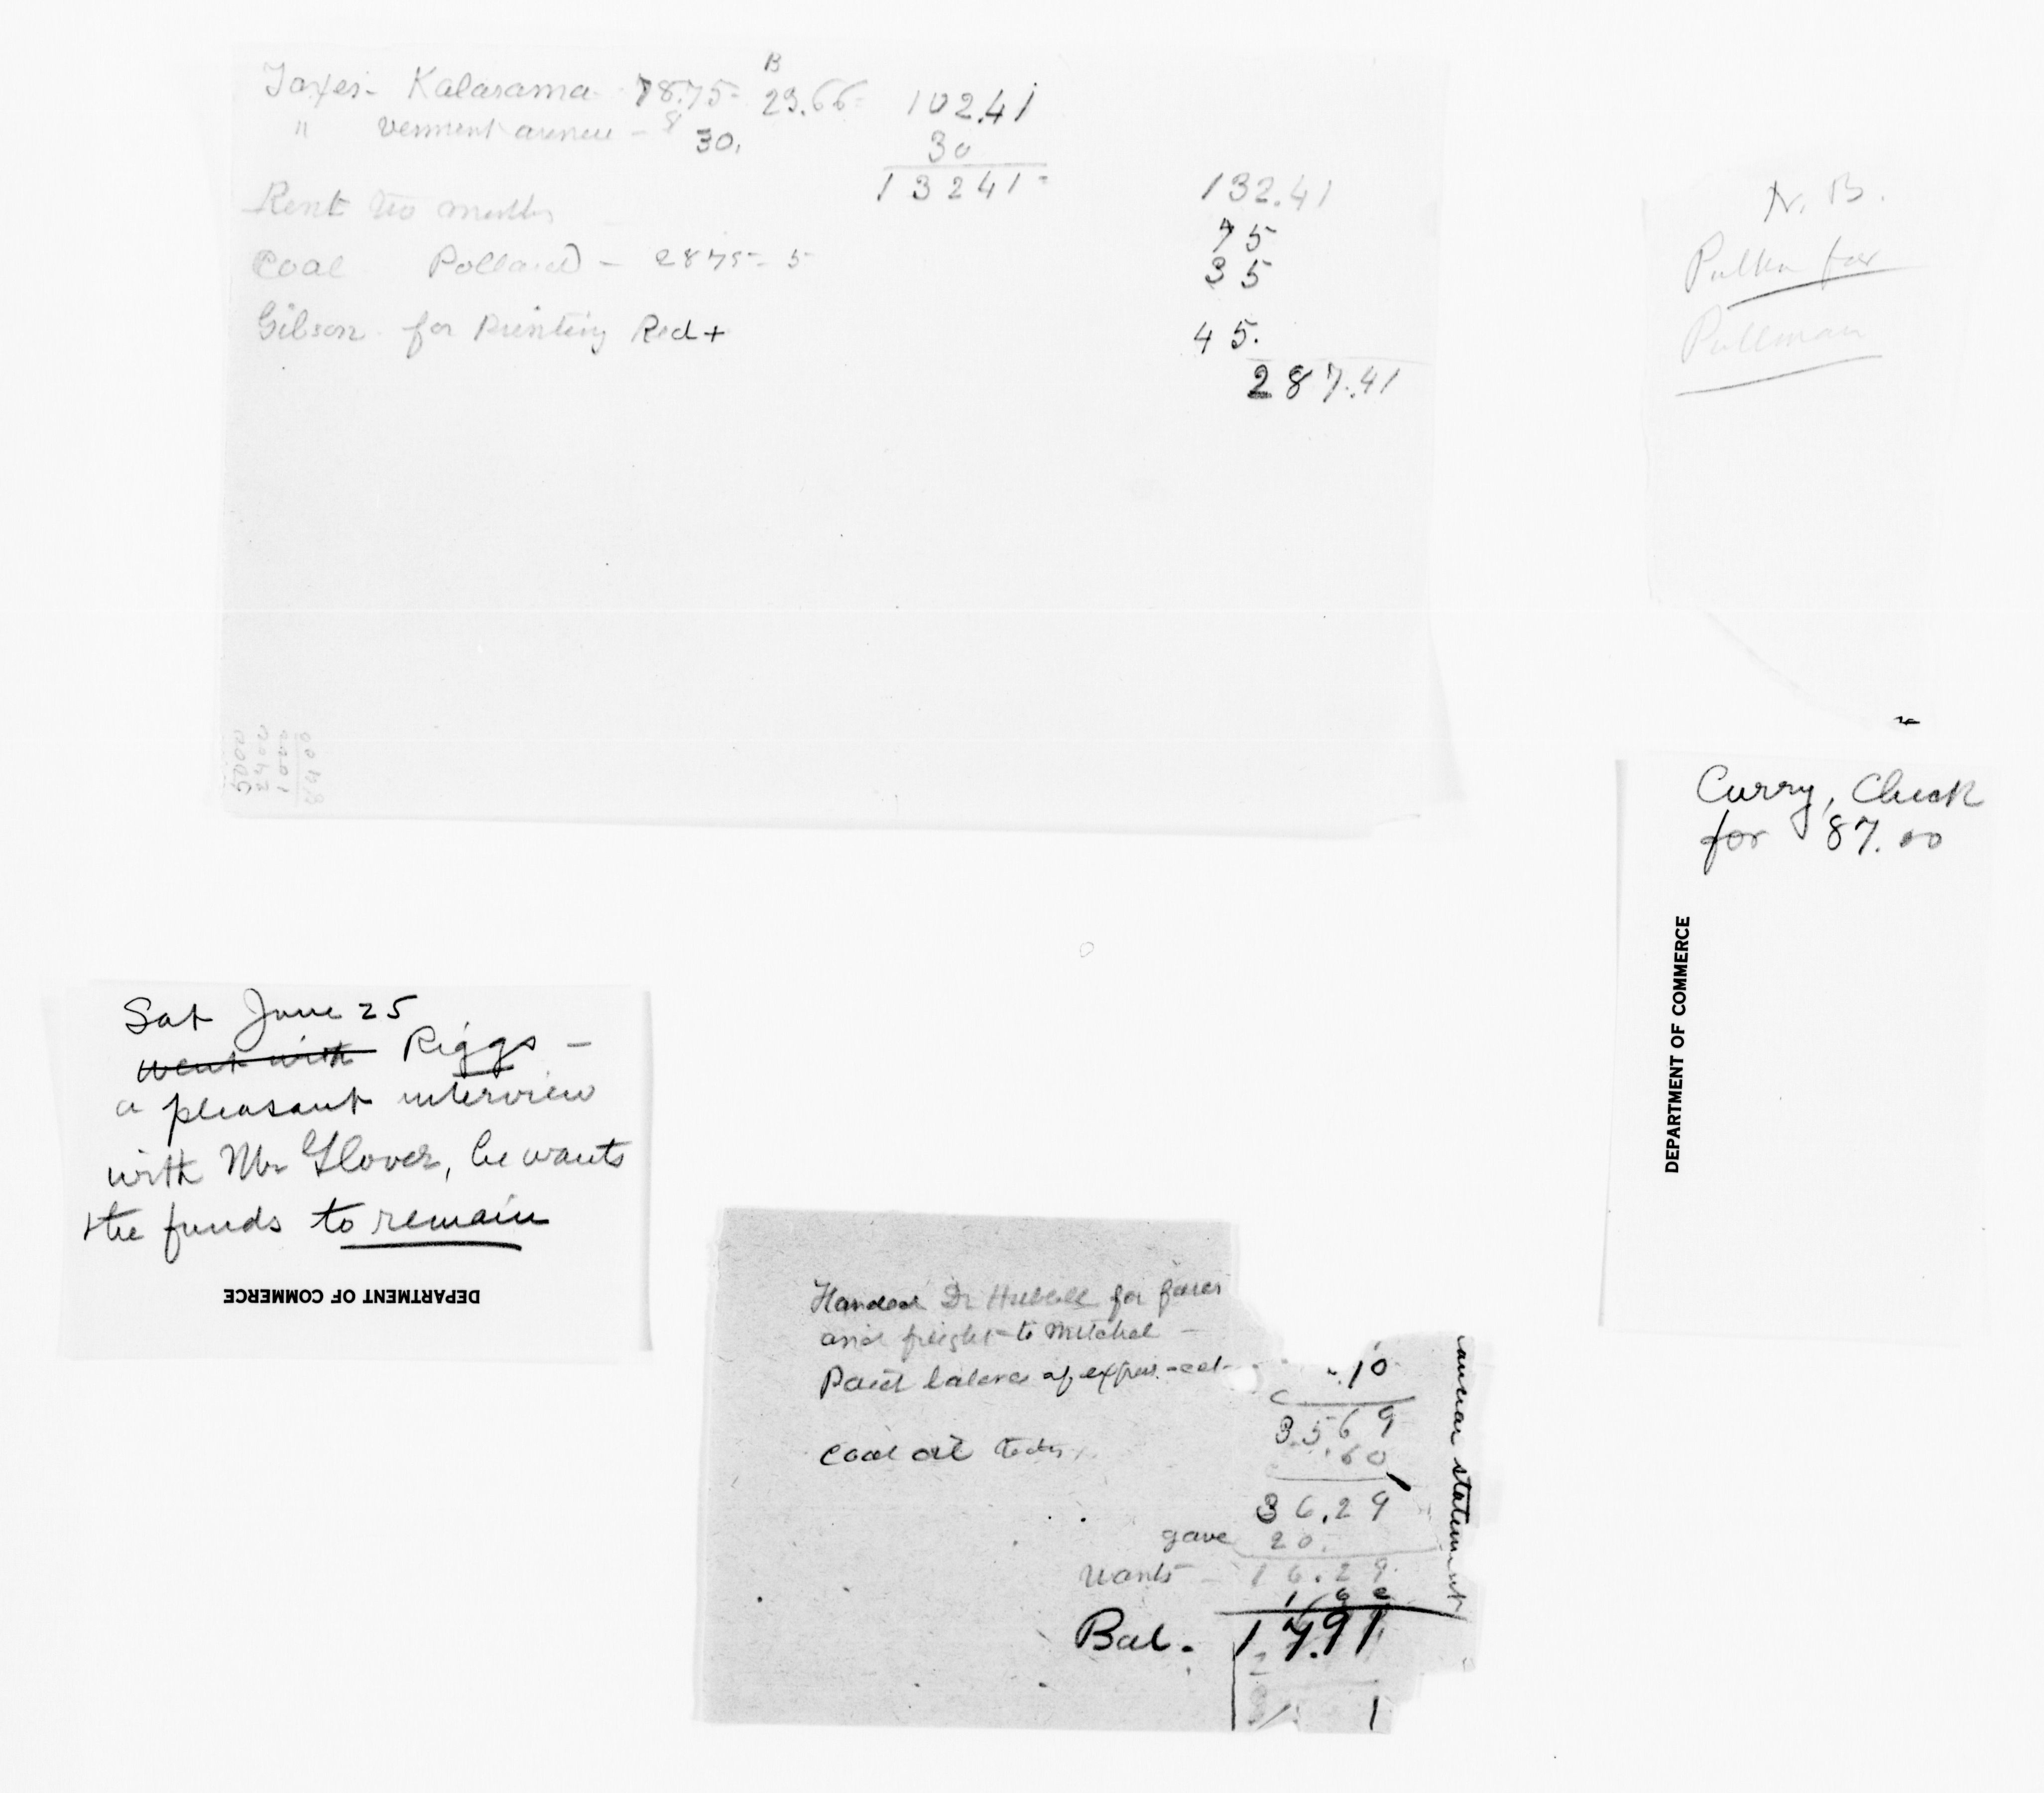 Taxes- Kalarama- 78.75- B 23.66- 102.41
" vermont avenue - 8 30. 30
13241-
132.41
Rent two months 75
Coal Pollard - 2875- 5 35
Gibson for Printing Red + 45.
287.41
5000
2400
1000
8400
N. B.
Pulka for
Pullman
Curry, Check
for 87.00
DEPARTMENT OF COMMERCE
Sat June 25
went with Riggs -
a pleasant interview
with Mr Glover, he wants
the funds to remain
DEPARTMENT OF COMMERCE
Handed Dr Hubbell for fares
and freight to Mitchel -
Paid balance of expres -
.10
35 69
Coal oil .60
36.29
gave 20.
wants - 16.29
1 62
Bal. 17.91
statement